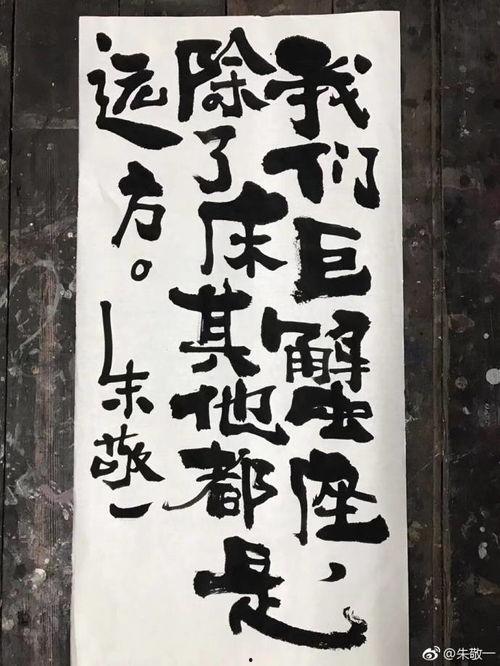 我们巨蟹座，
除了床其他都是
远方。
朱敬一
@朱敬一